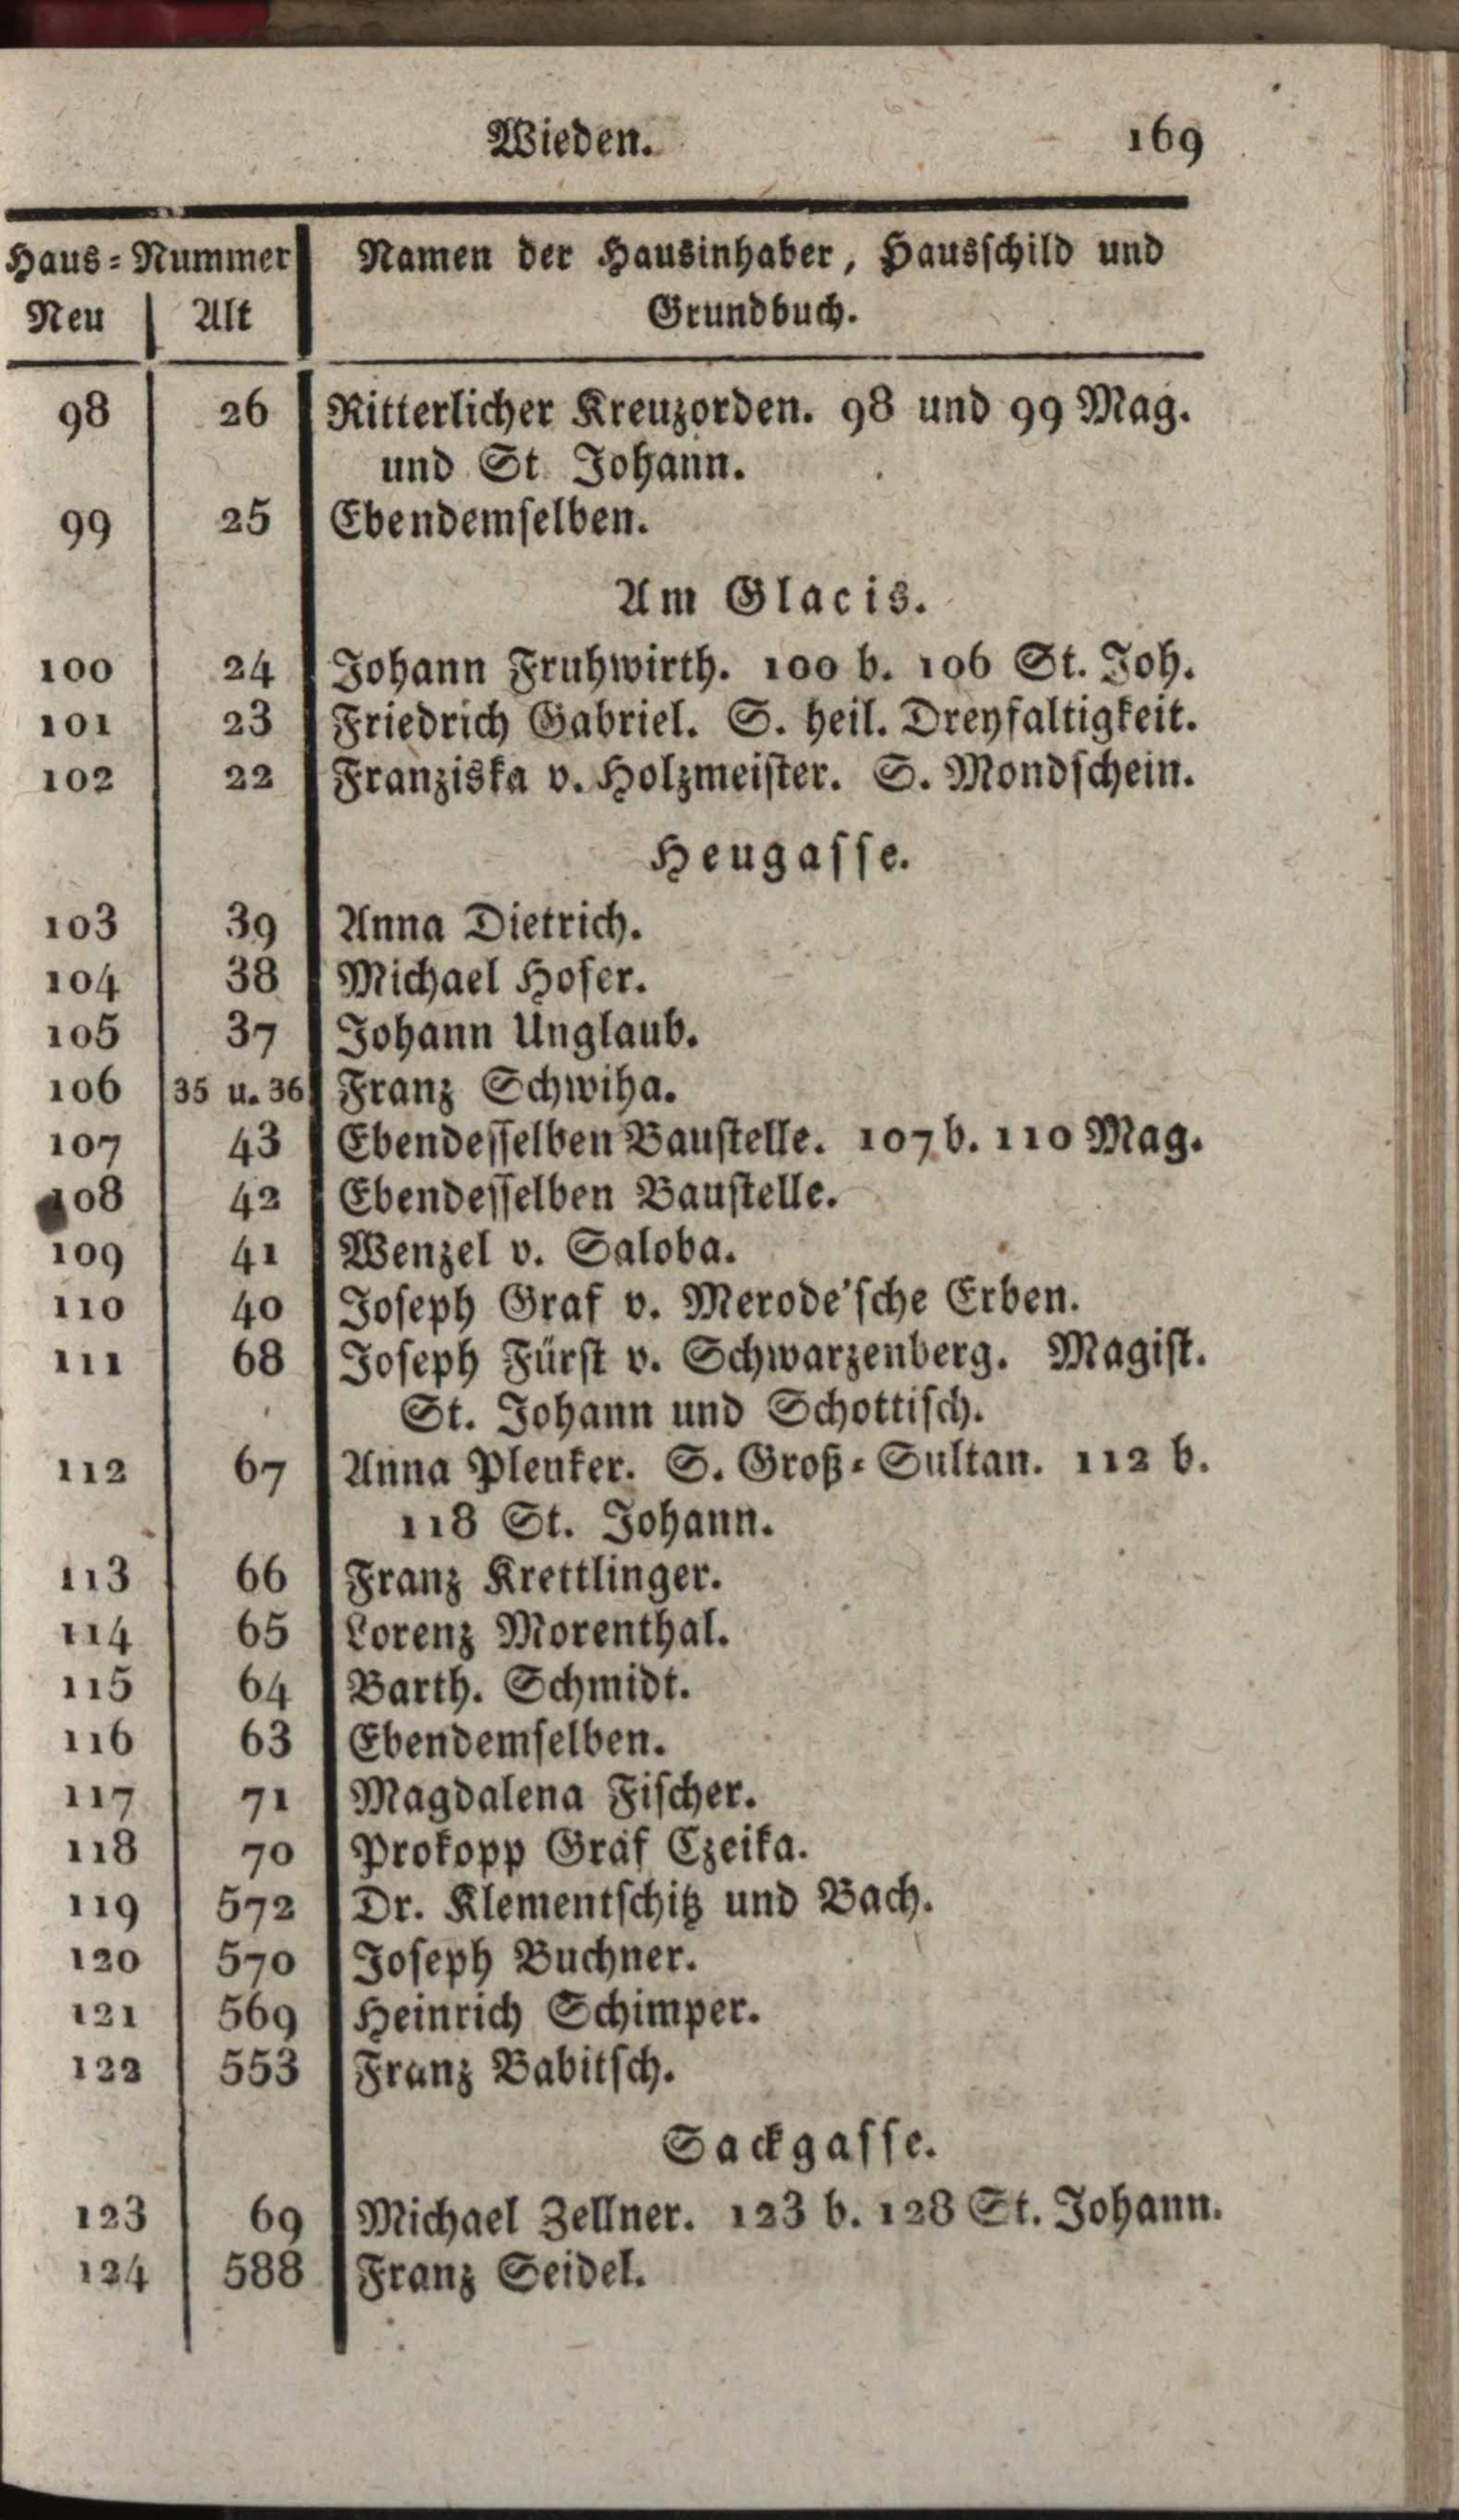 Wieden. 169
Haus-Nummer Namen der Hausinhaber, Hausschild und
Neu Alt Grundbuch.
98 26 Ritterlicher Kreuzorden. 98 und 99 Mag.
und St Johann.
99 25 Ebendemselben.
Am Glacis.
100 24 Johann Fruhwirth. 100 b. 106 St. Joh.
101 23 Friedrich Gabriel. S. heil. Dreyfaltigkeit.
102 22 Franziska v. Holzmeister. S. Mondschein.
Heugasse.
103 39 Anna Dietrich.
104 38 Michael Hofer.
105 37 Johann Unglaub.
106 35 u. 36 Franz Schwiha.
107 43 Ebendesselben Baustelle. 107 b. 110 Mag.
108 42 Ebendesselben Baustelle.
109 41 Wenzel v. Saloba.
110 40 Joseph Graf v. Merode'sche Erben.
111 68 Joseph Fürst v. Schwarzenberg. Magist.
St. Johann und Schottisch.
112 67 Anna Plenker. S. Groß-Sultan. 112 b.
118 St. Johann.
113 66 Franz Krettlinger.
114 65 Lorenz Morenthal.
115 64 Barth. Schmidt.
116 63 Ebendemselben.
117 71 Magdalena Fischer.
118 70 Prokopp Graf Czeika.
119 572 Dr. Klementschitz und Bach.
120 570 Joseph Buchner.
121 569 Heinrich Schimper.
122 553 Franz Babitsch.
Sackgasse.
123 69 Michael Zellner. 123 b. 128 St. Johann.
124 588 Franz Seidel.